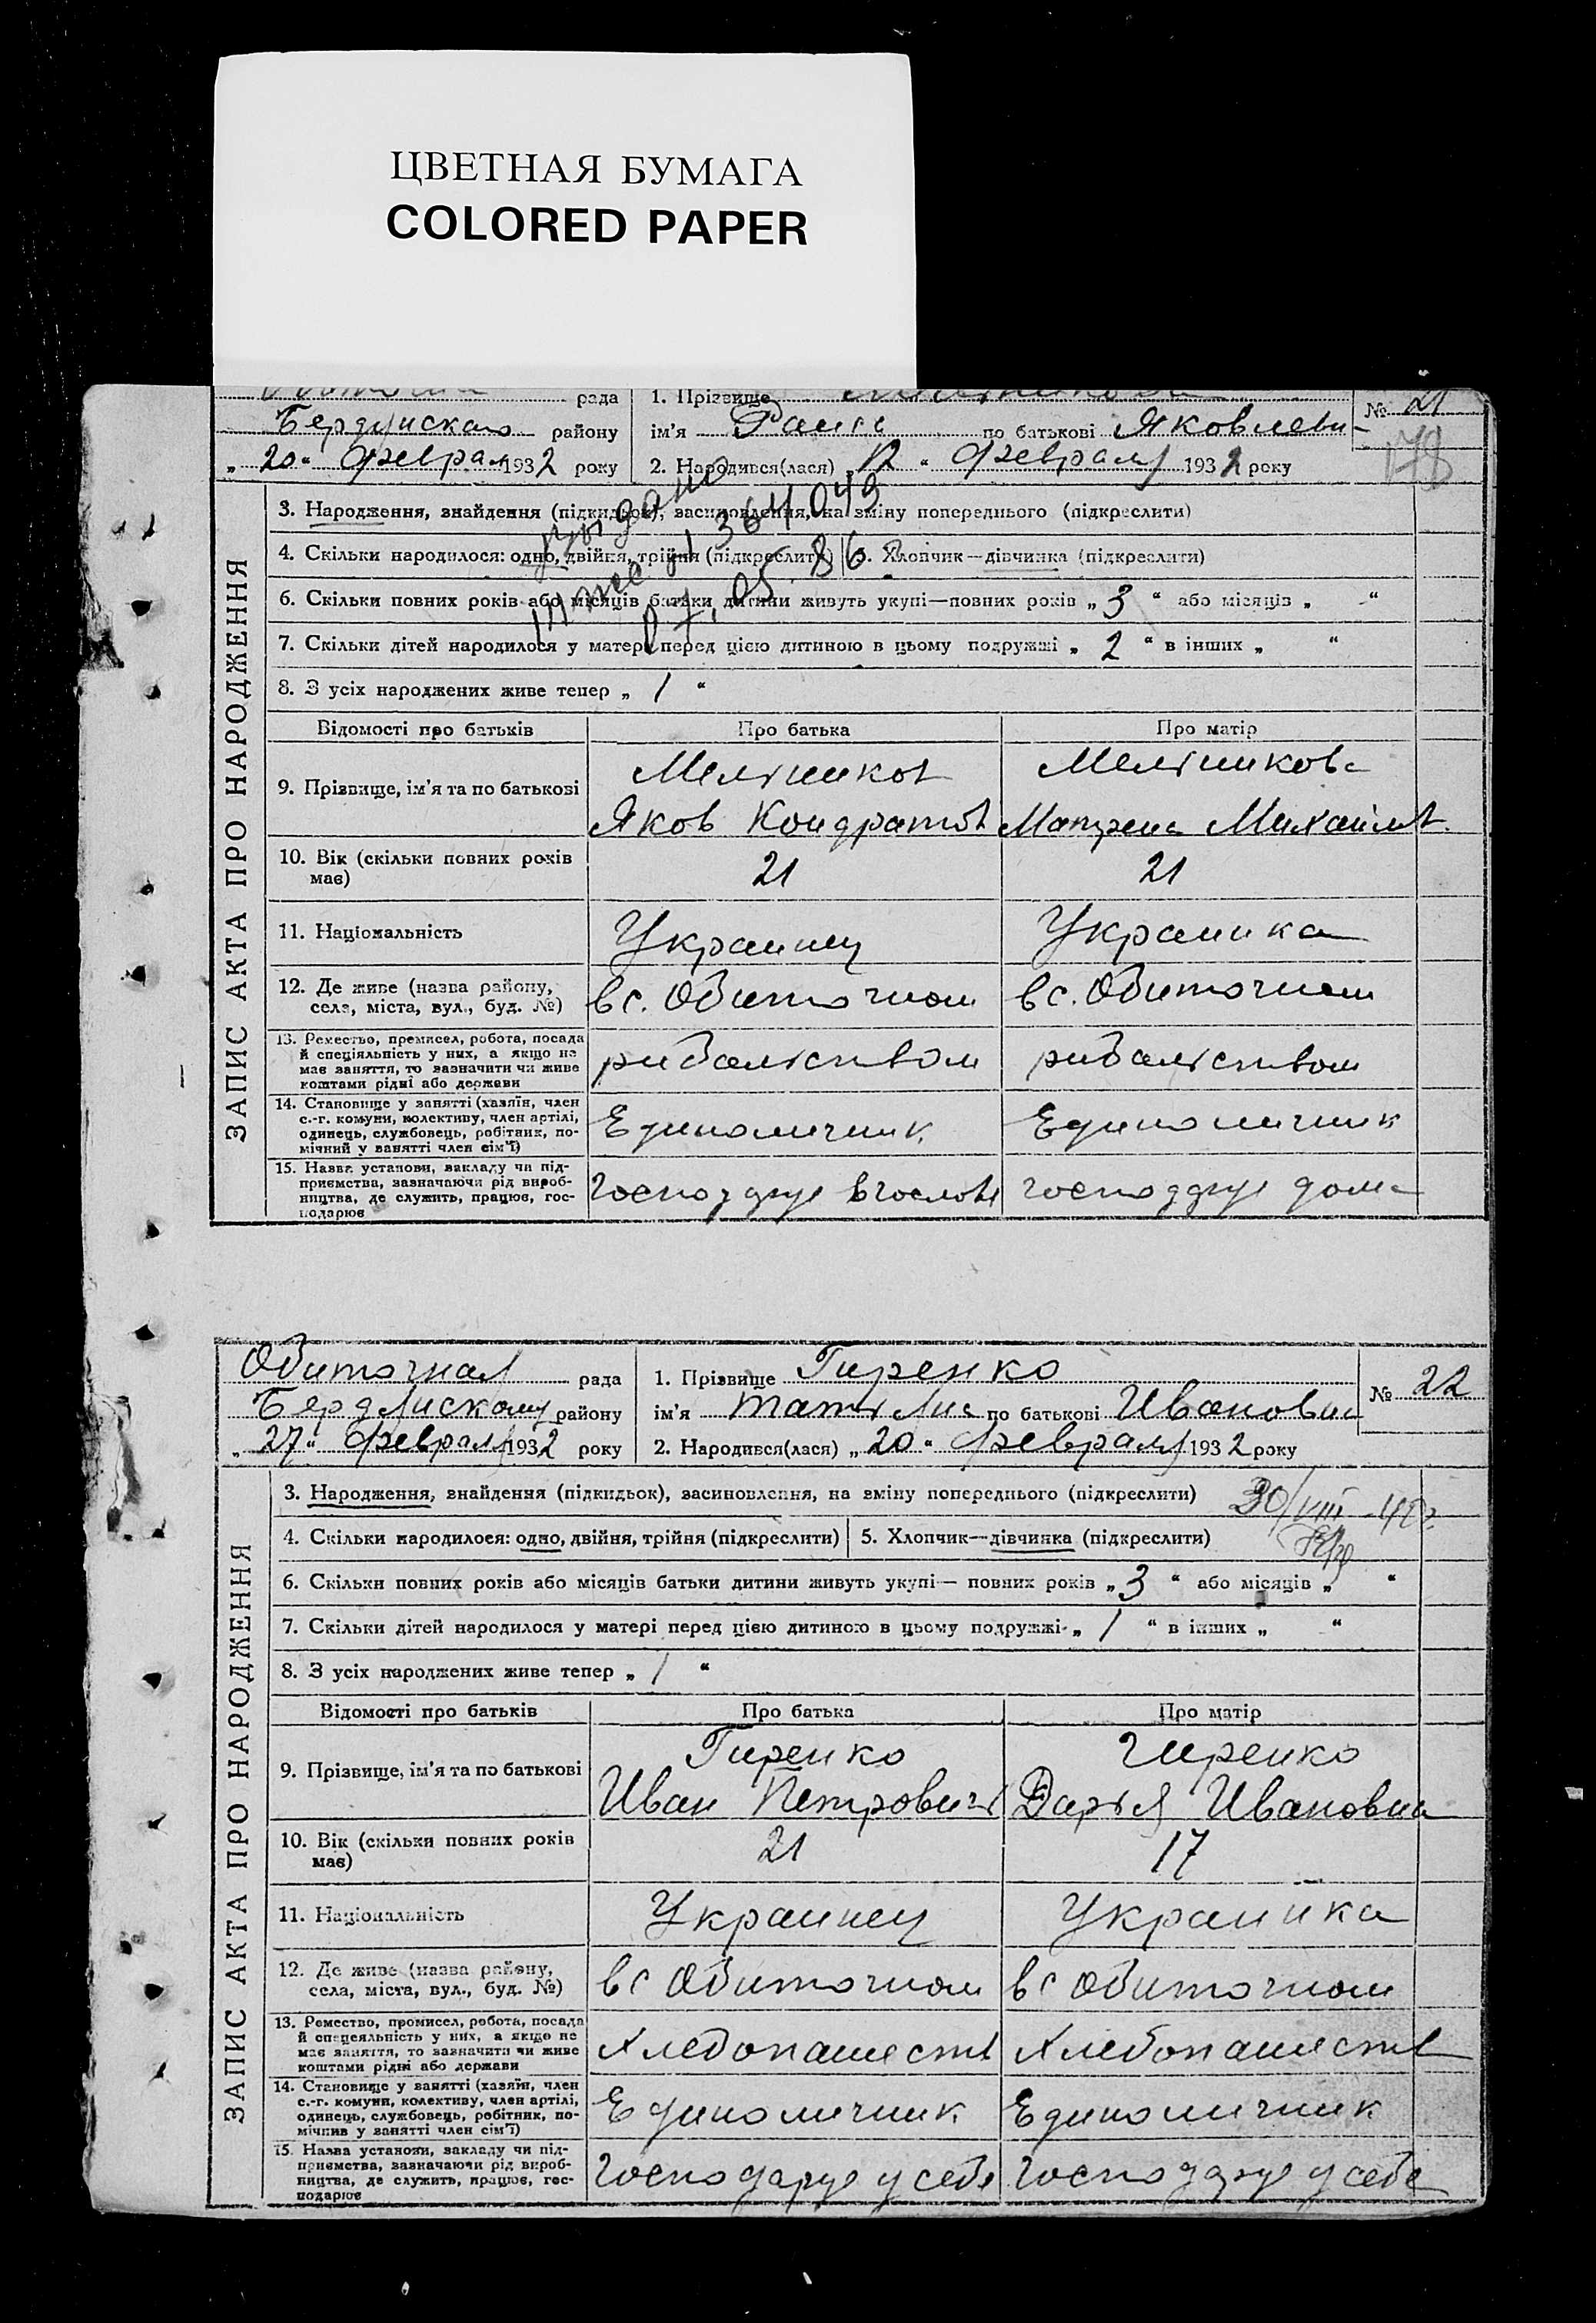 ЦВЕТНАЯ БУМАГА
COLORED PAPER
рада
Бердянскаго району
„ 20 “ февраля 1932 року
1. Прізвище
ім'я Раиса по батькові Яковлевн
2. Народився(лася) „ 12 “ февраля 1932 року
№ 21
178
ЗАПИС АКТА ПРО НАРОДЖЕННЯ
3. Народження, знайдення (підкидьок), засиновлення, на зміну попереднього (підкреслити)
4. Скільки народилося: одно, двійня, трійня (підкреслити)
5. Хлопчик—дівчинка (підкреслити)
выдано
364049
6. Скільки повних років або місяців батьки дитини живуть укупі—повних років „ 3 “ або місяців „ “
7. Скільки дітей народилося у матері перед цією дитиною в цьому подружжі „ 2 “ в інших „ “
8. З усіх народжених живе тепер „ 1 “
Відомості про батьків
Про батька
Про матір
9. Прізвище, ім'я та по батькові
Мельников
Яков Кондратов
Мельникова
Матрена Михаилов.
10. Вік (скільки повних років має)
21
21
11. Національність
Украинец
Украинка
12. Де живе (назва району, села, міста, вул., буд. №)
в с. Обиточном
в с. Обиточном
13. Ремество, промисел, робота, посада
й спеціяльність у них, а якщо не
має заняття, то зазначити чи живе
коштами рідні або держави
рибальством
рибальством
14. Становище у занятті (хазяїн, член
с.-г. комуни, колективу, член артілі,
одинець, службовець, робітник, по-
мічний у занятті член сім'ї)
Единоличник
Единоличник
15. Назва установи, закладу чи під-
приємства, зазначаючи рід вироб-
ництва, де служить, працює, гос-
подарює
дома
Обиточная рада
Бердянскому району
„ 27 “ февраля 1932 року
1. Прізвище Гиренко
ім'я Татьяна по батькові Ивановна
2. Народився(лася) „ 20 “ февраля 1932 року
№ 22
ЗАПИС АКТА ПРО НАРОДЖЕННЯ
3. Народження, знайдення (підкидьок), засиновлення, на зміну попереднього (підкреслити)
30/VIII
4. Скільки народилося: одно, двійня, трійня (підкреслити)
5. Хлопчик—дівчинка (підкреслити)
6. Скільки повних років або місяців батьки дитини живуть укупі— повних років „ 3 “ або місяців „ “
7. Скільки дітей народилося у матері перед цією дитиною в цьому подружжі „ 1 “ в інших „ “
8. З усіх народжених живе тепер „ 1 “
Відомості про батьків
Про батька
Про матір
9. Прізвище, ім'я та по батькові
Гиренко
Иван Петрович
Гиренко
Дарья Ивановна
10. Вік (скільки повних років має)
21
17
11. Національність
Украинец
Украинка
12. Де живе (назва району, села, міста, вул., буд. №)
в с Обиточном
в с Обиточном
13. Ремество, промисел, робота, посада
й спеціяльність у них, а якщо не
має заняття, то зазначити чи живе
коштами рідні або держави
Хлебопашеств
Хлебопашеств
14. Становище у занятті (хазяїн, член
с.-г. комуни, колективу, член артілі,
одинець, службовець, робітник, по-
мічник у занятті член сім'ї)
Единоличник
Единоличник
15. Назва установи, закладу чи під-
приємства, зазначаючи рід вироб-
ництва, де служить, працює, гос-
подарює
Господарує у себе
Господарує у себе